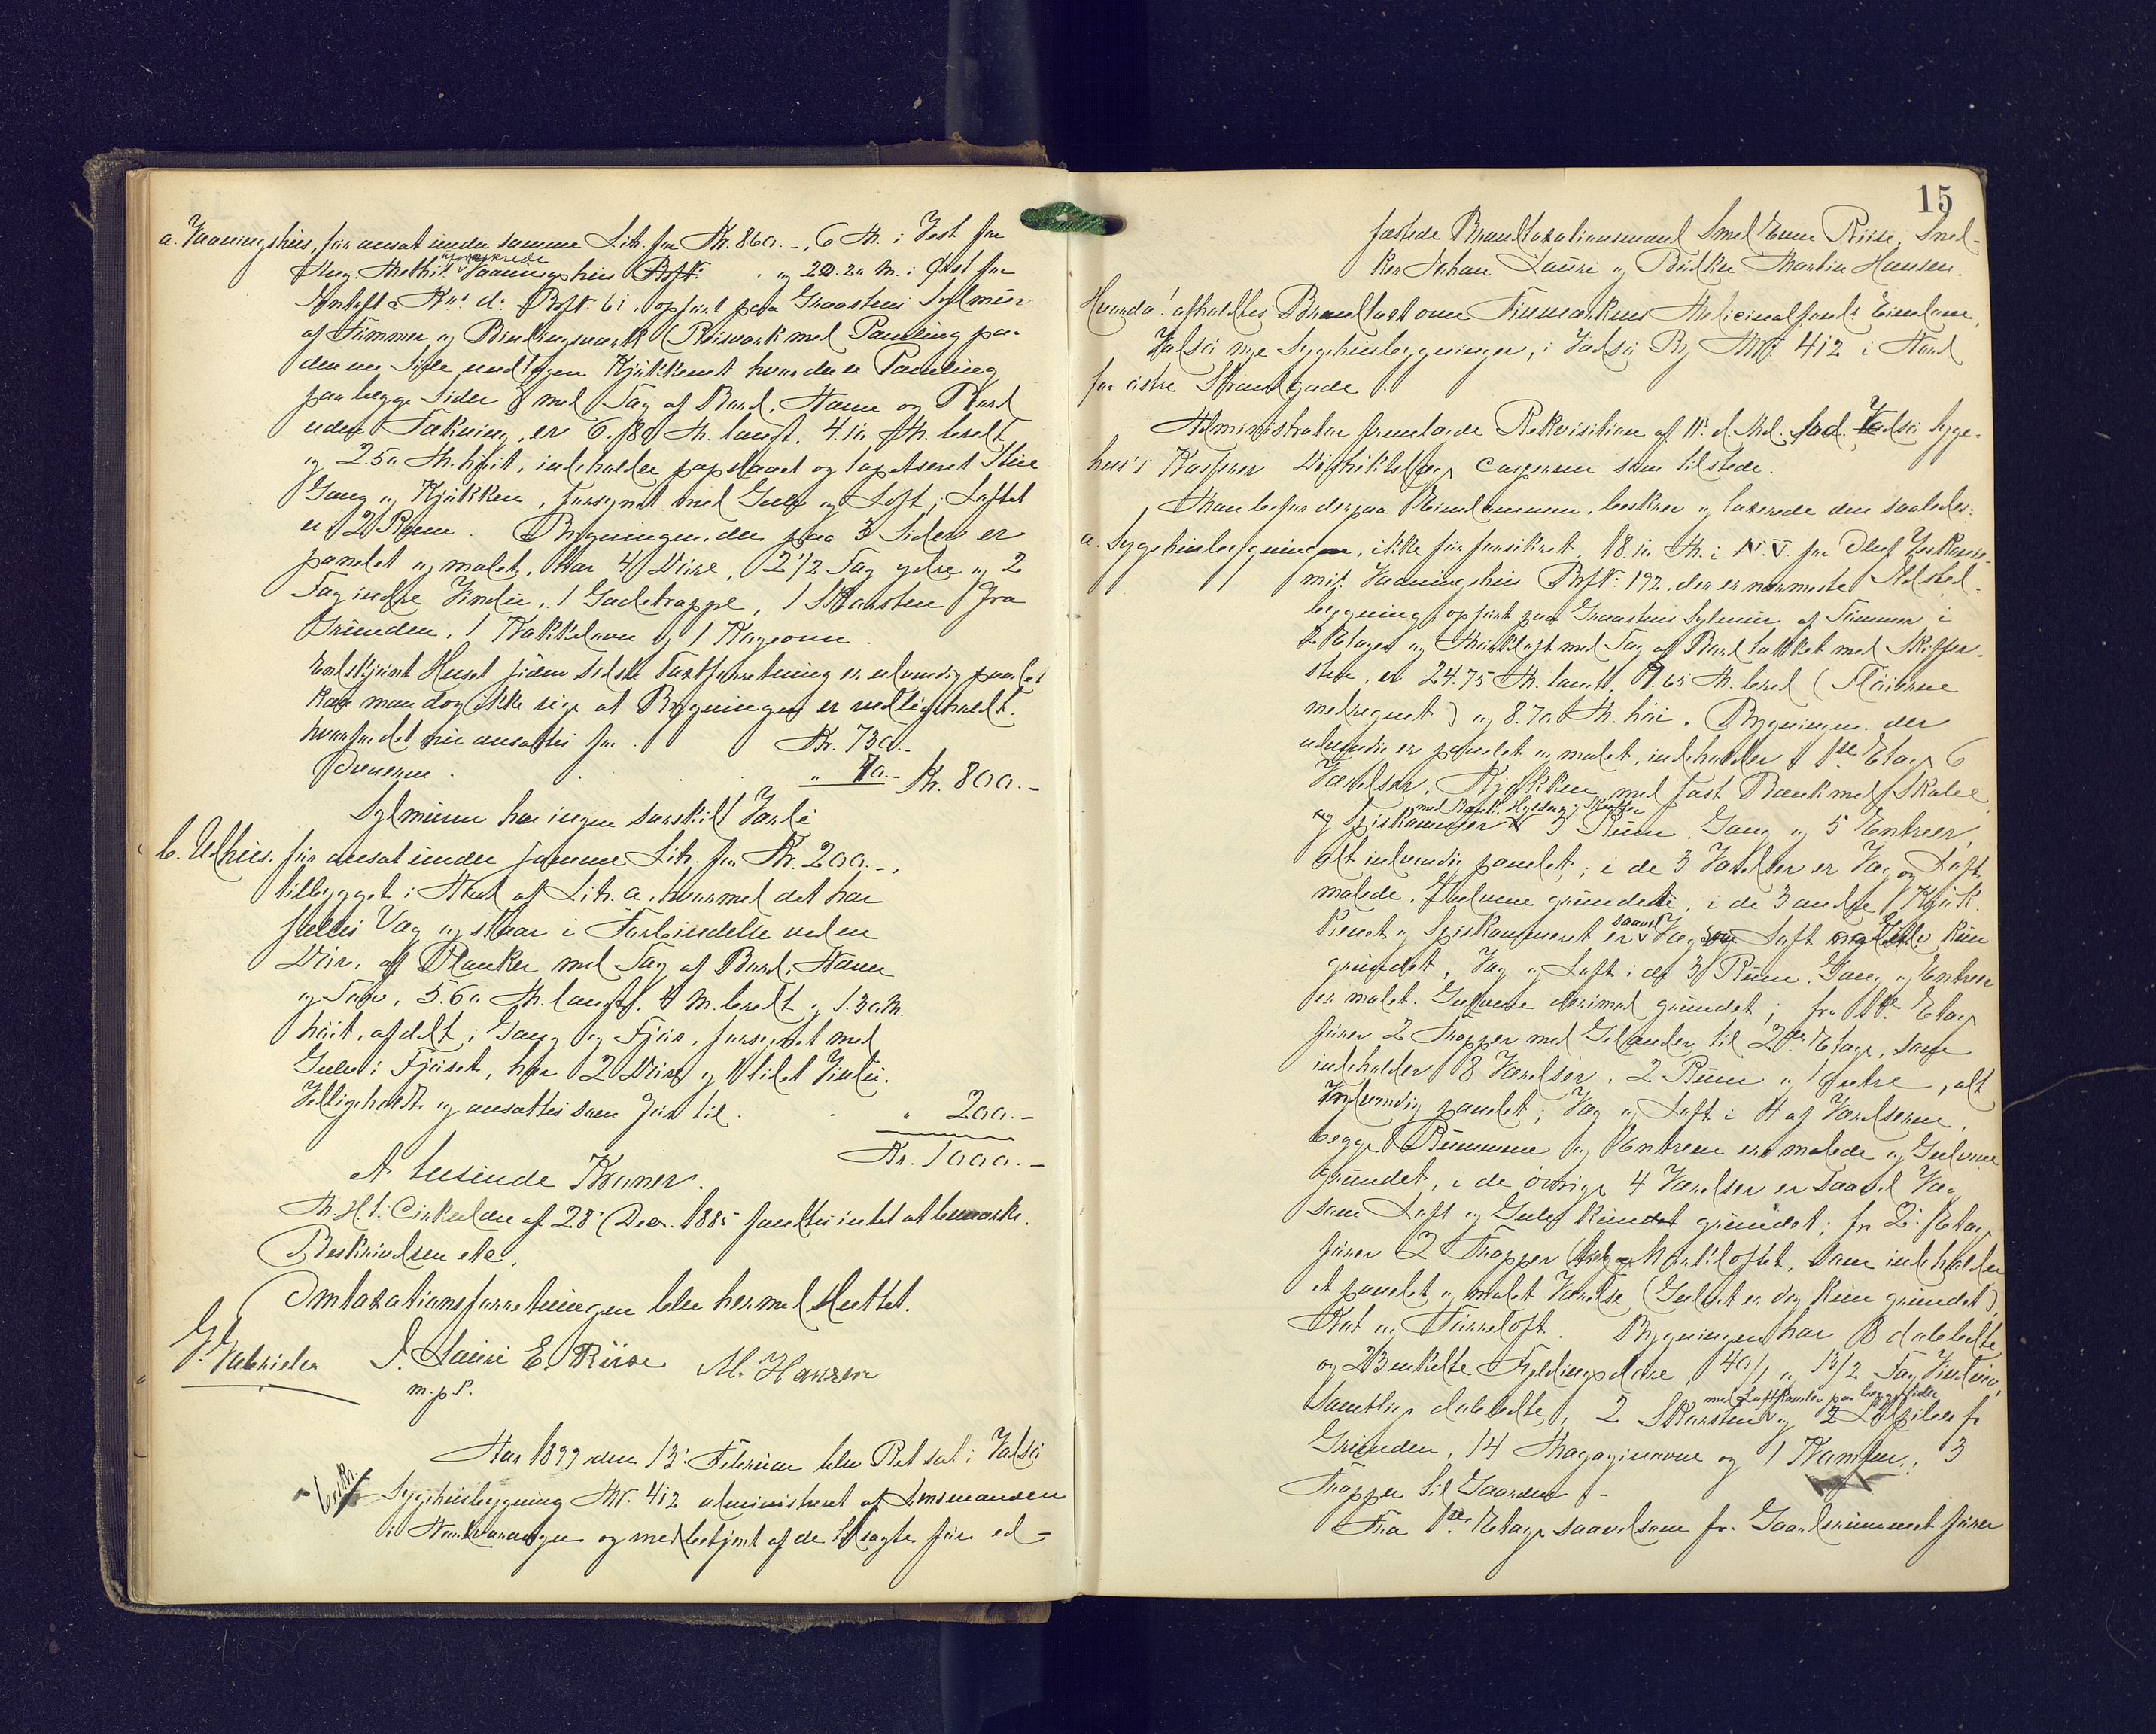 a. Vaaningshus, før ansat under samme Lit. for Kr. 860.-, 6 M. i Vest for
Vaaningshus og 20.20 M. i Øst for
Br.N. 61, opført paa Graastens Sylmur
af Tømmer og Bindingsværk (Reisværk med Paneling paa
den ene Side, undtagen Kjøkkenet hvor der er Paneling
paa begge Sider) med Tag af Bord, Næver og Bord
uden Tækning, er 6.80 M. langt, 4.10 M. bredt
og 2.50 M. høit, indeholder papslaaet og tapetseret Stue
Gang og Kjøkken, forsynet med Gulv og Loft; Loftet
er i 2 Rum. Bygningen, der paa 3 Sider er
panelet og malet, har 4 Døre, 2 1/2 Fag ydre og 2
Fag indre Vindu, 1 Gadetrappe, 1 Skorsten fra
Grunden, 1 Kakkelovn og 1 Kogeovn.
Endskjønt Huset siden sidste Taxtforretning er udvendig panelet
kan man dog ikke sige at Bygningen er vedligeholdt.
hvorfor det nu ansattes for . Kr. 730.-
Ovnene . . . " 70.- Kr. 800.-
Sylmuren har ingen særskilt Værdi
b. Udhus, før ansat under samme Lit. for Kr. 200.-,
tilbygget i Nord af Lit. a, hvormed det har
fælles Væg og staar i Forbindelse ved en
Dør, af Planker med Tag af Bord, Næver
og Torv, 5.60 M. langt, 4 M. bredt og 1.30 M.
høit, afdelt i Gang og Fjøs, forsynet med
Gulv i Fjøset, har 2 Døre og 1 lidet Vindu.
Vedligeholdt og ansattes som før til . . " 200.-
Kr. 1000.-
Et tusinde Kroner.
M. H. t. Cirkulære af 28. Decr. 1885 fandtes intet at bemærke.
Beskrivelsen etc.
Omtaxationsforretningen blev hermed sluttet.
G. Gabrielsen J. Lauri E. Riise M. Hansen
m. p. P.
Aar 1899 den 13. Februar blev Ret sat i Vadsø
Sygehusbygning M.Nr. 412 administreret af Lensmanden
i Nordvaranger og medbetjent af de udtagte før ed-
15
fæstede Brandtaxationsmænd Smed Even Riise, Sned-
ker Johan Lauri og Bødker Martin Hansen.
Hvorda! afholdtes Brandtaxt over Finmarkens Medicinalfonds Eiendom,
Vadsø nye Sygehusbygninger, i Vadsø By M.N. 412 i Nord
for østre Strandgade.
Administrator fremlagde Rekvisition af 11. d. Md. fra Vadsø Syge-
hus's Kasserer Distriktslæge Caspersen som tilstede.
Man befor derpaa Eiendommen, beskrev og taxerede den saaledes:
a. Sygehusbygningen, ikke før forsikret, 18.10 M. i N.V. for Oluf
Vaaningshus Br.N. 192, der er nærmeste Nabosted-
bygning, opført paa Graastens Sylmur af Tømmer i
2 Etager og Mørkloft med Tag af Bord tækket med Skiffer-
sten, er 24.75 M. langt, 7.65 M. bred (Fløiene
medregnet) og 8.70 M. høi. Bygningen, der
udvendig er panelet og malet, indeholder i 1ste Etage 6
Værelser, Kjøkken med fast Bænk med Skabe,
med Bænk, Hylder og Skuffer
og Spiskammer 3 Rum, Gang og 5 Entreer,
alt indvendig panelet; i de 3 Værelser er Væg og Loft
malede, Gulvene grundede, i de 3 andre, Kjøk-
saavel
kenet og Spiskammeret er Væg som Loft og Gulv kun
grundet, Væg og Loft i de 3 Rum, Gang og Entreer
er malet, Gulvene derimod grundet; fra 1ste Etage
fører 2 Trapper med Gelænder til 2den Etage, som
indeholder 8 Værelser, 2 Rum og 1 Entre, alt
indvendig panelet; Væg og Loft i 4 af Værelserne,
begge Rummene og Entreen er malede og Gulvene
grundet, i de øvrige 4 Værelser er saavel Væg
som Loft og Gulv kun grundet; fra 2. Etage
fører 2 Trapper til Mørkloftet, som indeholder
et panelet og malet Værelse (Gulvet er dog kun grundet),
Kot og Tørreloft. Bygningen har 8 dobbelte
og 23 enkelte Fyldingsdøre, 40/1 og 13/2 Fag Vinduer,
med Luftkanaler paa begge Sider
samtlige dobbelte, 2 Skorstene og 2 Løbpiber fra
Grunden, 14 Magazinovne og 1 Komfur; 3
Trapper til Gaarden.-
Fra 1ste Etage saavelsom fra Gaardsrummet fører